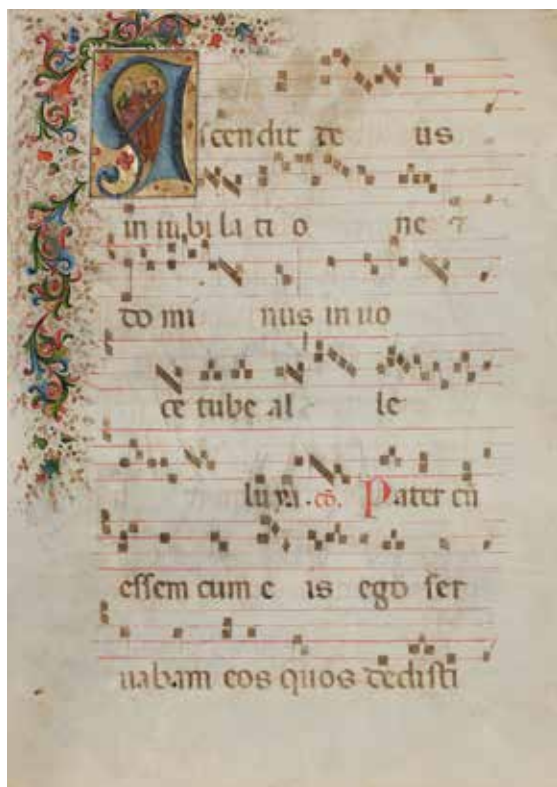 Ascendit de us
in iubi la ti o ne ⁊
do mi nus in uo
ce tube al le
luya. cō. Pater cū
essem cum e is ego ser
uabam eos quos dedisti